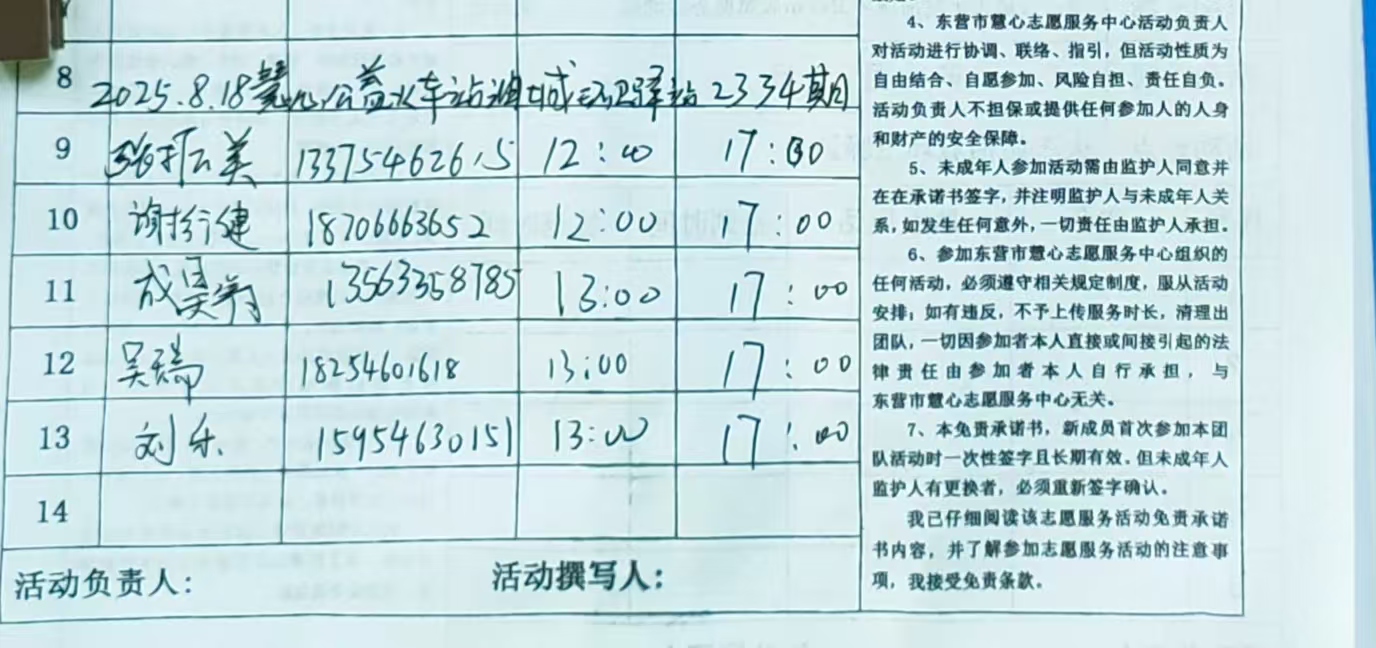 8 2025.8.18慧心公益火车站油城环卫驿站2334期
9 美 13375462615 12:00 17:00
10 谢 健 18706663652 12:00 17:00
11 成昊 13563358785 13:00 17:00
12 吴瑞 18254601618 13:00 17:00
13 刘乐 15954630151 13:00 17:00
14
活动负责人： 活动撰写人：
4、东营市慧心志愿服务中心活动负责人
对活动进行协调、联络、指引，但活动性质为
自由结合、自愿参加、风险自担、责任自负。
活动负责人不担保或提供任何参加人的人身
和财产的安全保障。
5、未成年人参加活动需由监护人同意并
在在承诺书签字，并注明监护人与未成年人关
系，如发生任何意外，一切责任由监护人承担。
6、参加东营市慧心志愿服务中心组织的
任何活动，必须遵守相关规定制度，服从活动
安排；如有违反，不予上传服务时长，清理出
团队，一切因参加者本人直接或间接引起的法
律责任由参加者本人自行承担，与
东营市慧心志愿服务中心无关。
7、本免责承诺书，新成员首次参加本团
队活动时一次性签字且长期有效。但未成年人
监护人有更换者，必须重新签字确认。
我已仔细阅读该志愿服务活动免责承诺
书内容，并了解参加志愿服务活动的注意事
项，我接受免责条款。